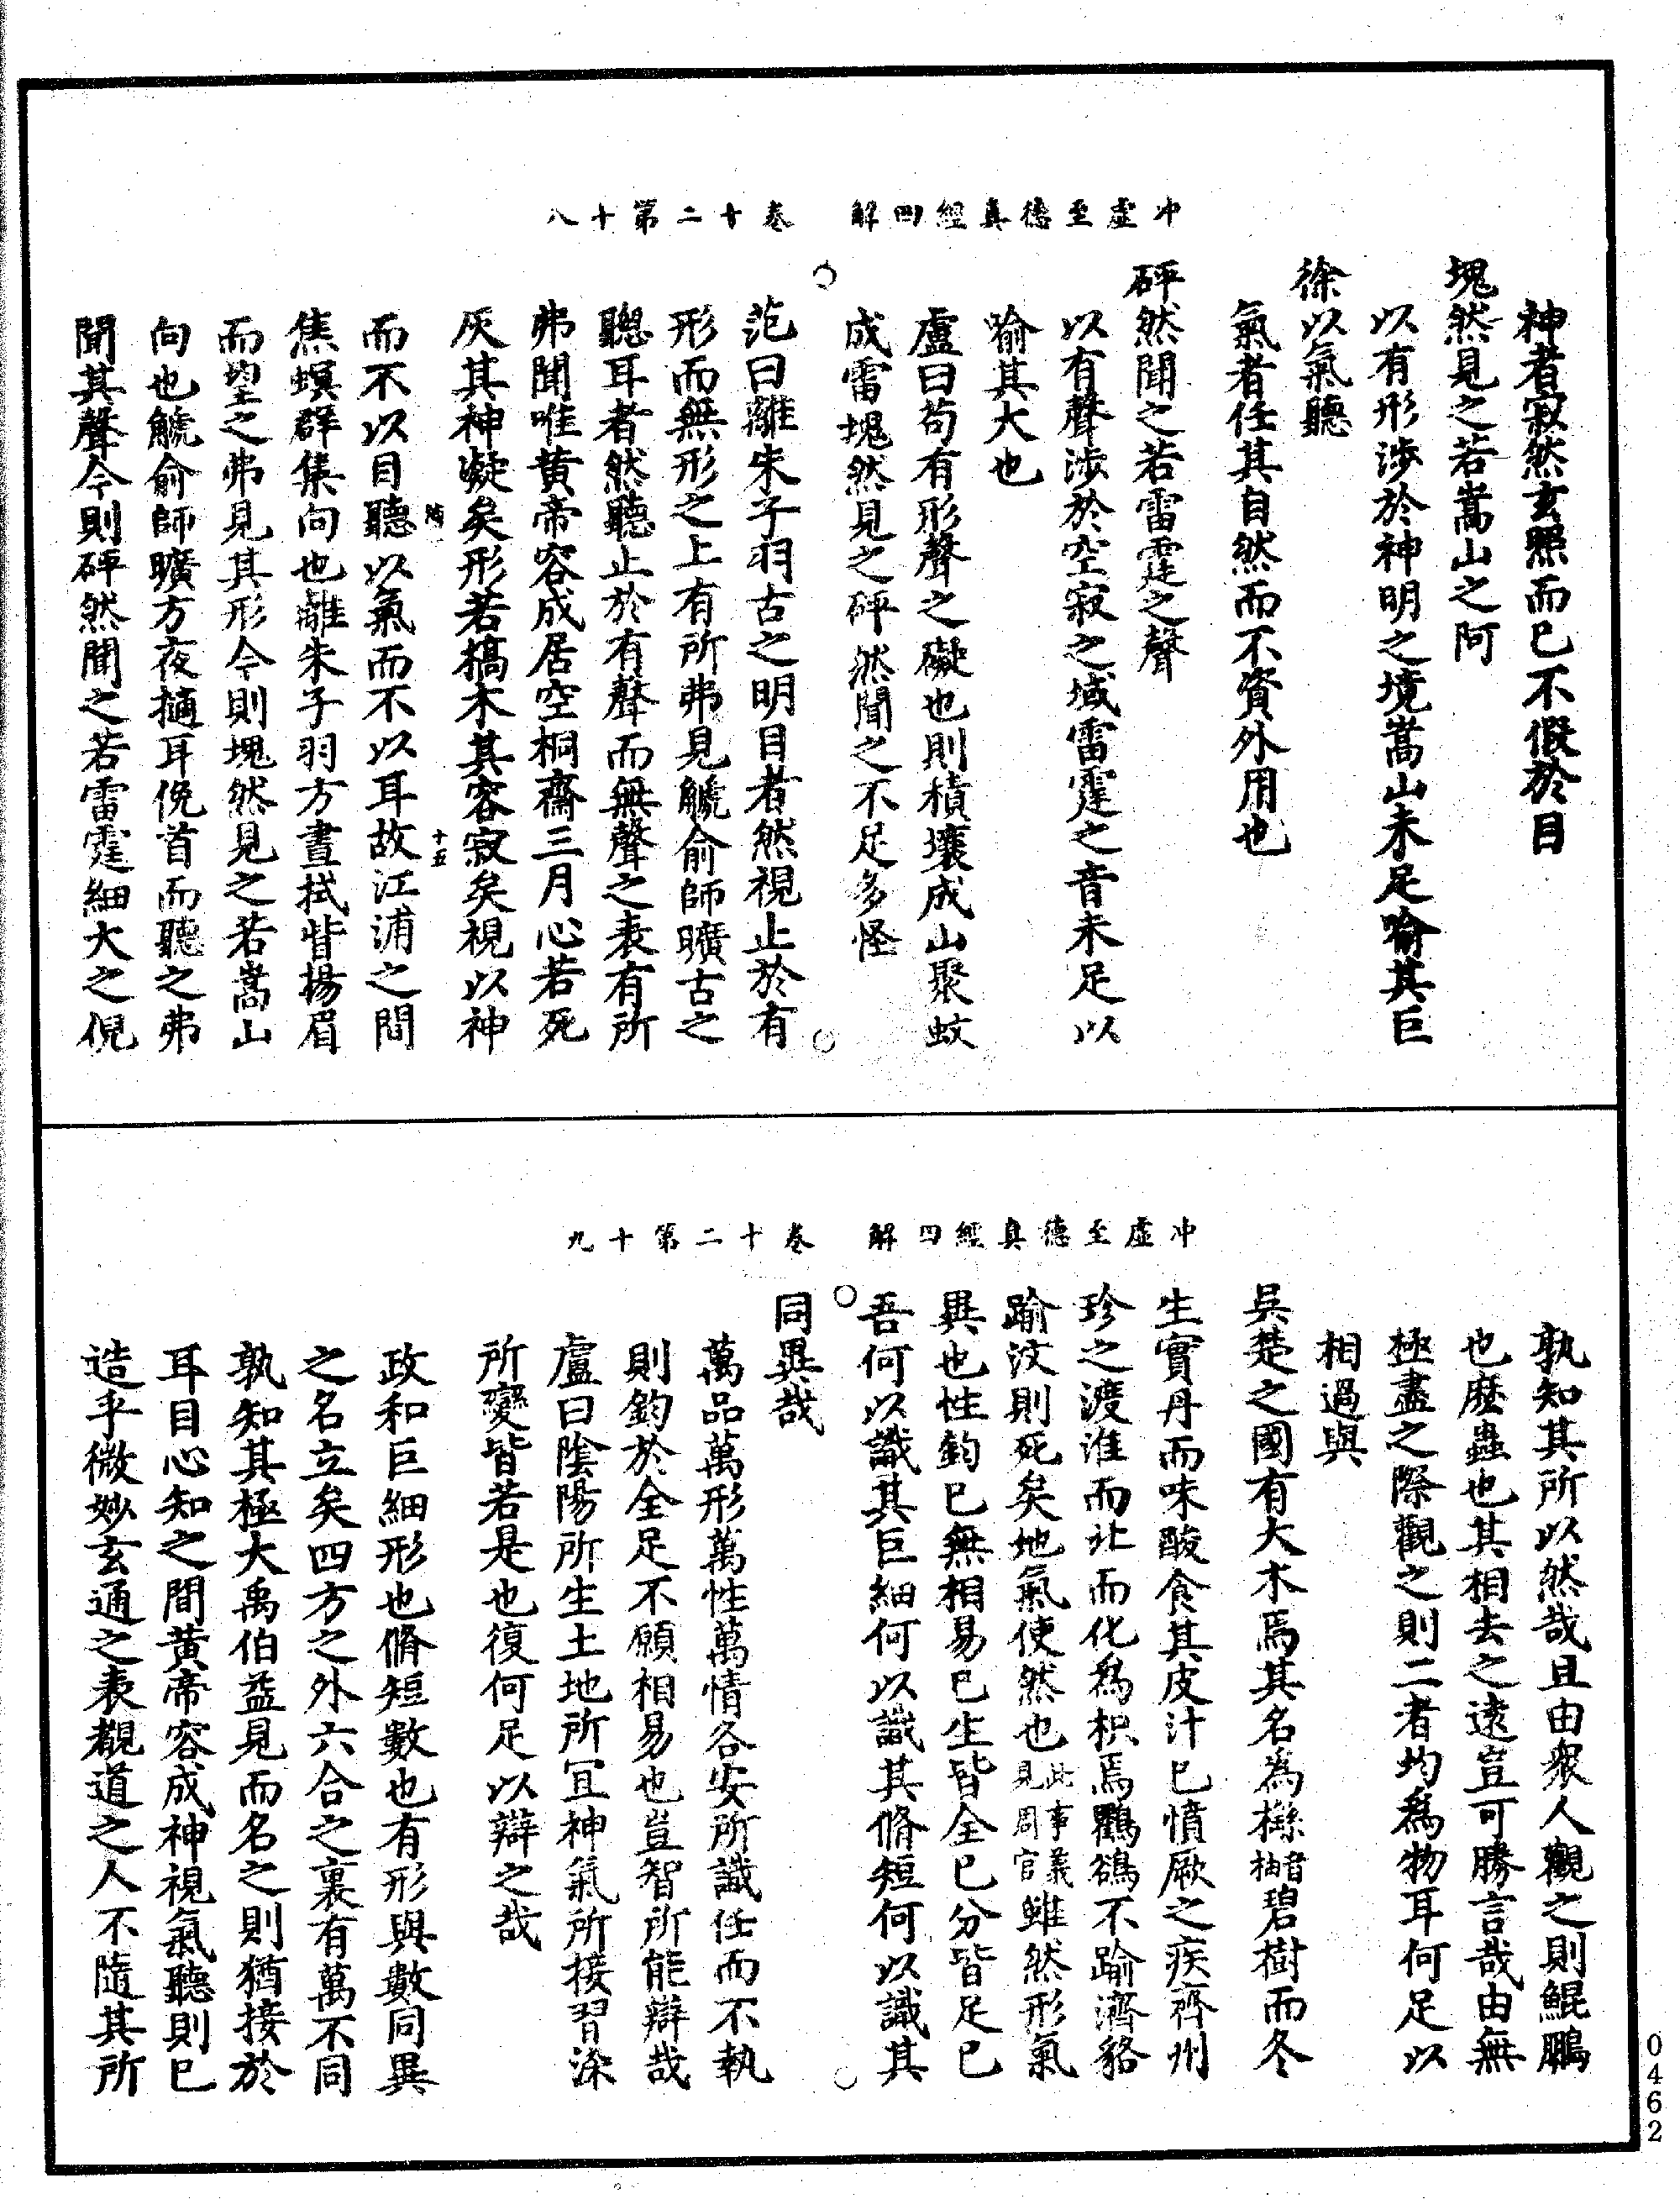 冲虛至德真經四解　卷十二第十八
神者寂然玄照而已不假於目
塊然見之若嵩山之阿
以有形涉於神明之境嵩山未足喻其巨
徐以氣聽
氣者任其自然而不資外用也
砰然聞之若雷霆之聲
以有聲涉於空寂之域雷霆之音未足以
喻其大也
盧曰苟有形聲之礙也則積壤成山聚蚊
成雷塊然見之砰然聞之不足多怪
范曰離朱子羽古之明目者然視止於有
形而無形之上有所弗見䚦俞師曠古之
聰耳者然聽止於有聲而無聲之表有所
弗聞唯黃帝容成居空桐齋三月心若死
灰其神凝矣形若槁木其容寂矣視以神
十五
而不以目聽以氣而不以耳故江浦之間
焦螟群集向也離朱子羽方晝拭眥揚眉
而望之弗見其形今則塊然見之若嵩山
向也䚦俞師曠方夜擿耳俛首而聽之弗
聞其聲今則砰然聞之若雷霆細大之倪
冲虛至德真經四解　卷十二第十九
孰知其所以然哉且由衆人觀之則鯤鵬
也麽蟲也其相去之遠豈可勝言哉由無
極盡之際觀之則二者均爲物耳何足以
相過與
吳楚之國有大木焉其名為櫾音柚碧樹而冬
生實丹而味酸食其皮汁已憤厥之疾齊州
珍之渡淮而北而化爲枳焉鸜鵒不踰濟貉
踰汶則死矣地氣使然也此事義見周官雖然形氣
異也性鈞已無相易已生皆全已分皆足已
吾何以識其巨細何以識其脩短何以識其
同異哉
萬品萬形萬性萬情各安所識任而不執
則鈞於全足不願相易也豈智所能辯哉
盧曰陰陽所生土地所宜神氣所接習染
所變皆若是也復何足以辯之哉
政和巨細形也脩短數也有形與數同異
之名立矣四方之外六合之裏有萬不同
孰知其極大禹伯益見而名之則猶接於
耳目心知之間黃帝容成神視氣聽則已
造乎微妙玄通之表覩道之人不隨其所
0462